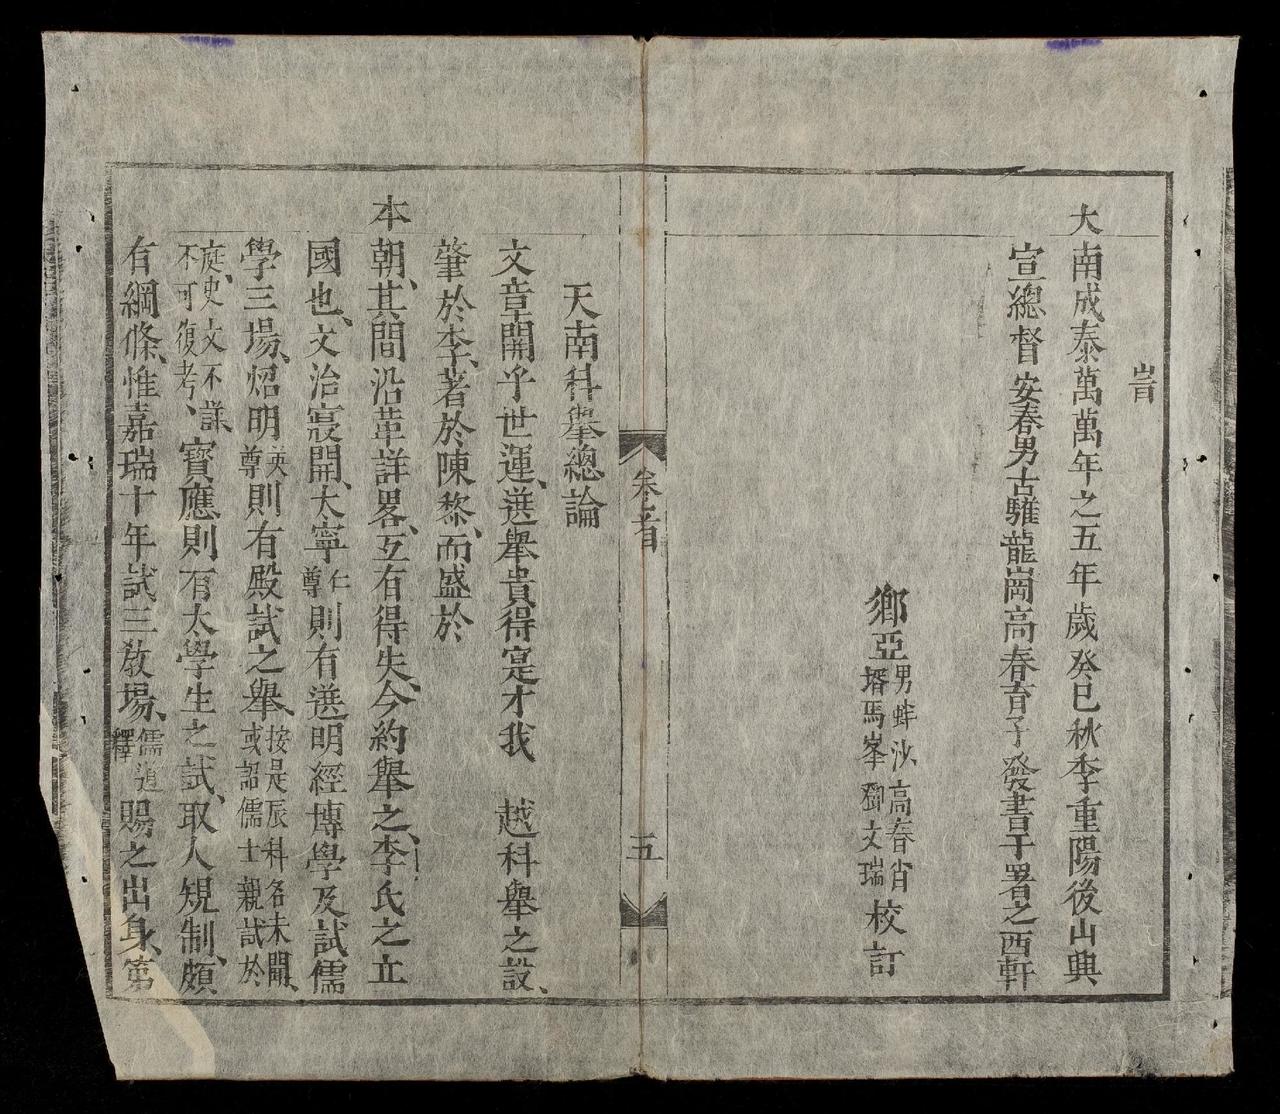 旹
大南成泰萬萬年之五年歲癸巳秋季重陽後山興
宣總督安春男古驩龍崗高春育子發書于署之西軒
鄉亞男蚌沙高春肖壻馬峯鄧文瑞校訂
卷之首 五
天南科舉總論
文章開乎世運、選舉貴得寔才我 越科舉之設、
肇於李、著於陳黎、而盛於
本朝、其間沿革詳畧、互有得失、今約舉之、李氏之立
國也、文治寢開、太寧仁尊則有選明經博學及試儒
學三場、炤明英尊則有殿試之舉、按是辰科名未開、或詔儒士親試於
庭、史文不詳、不可復考、寶應則有太學生之試、取人規制、頗
有綱條、惟嘉瑞十年試三教場、儒道釋賜之出身、第